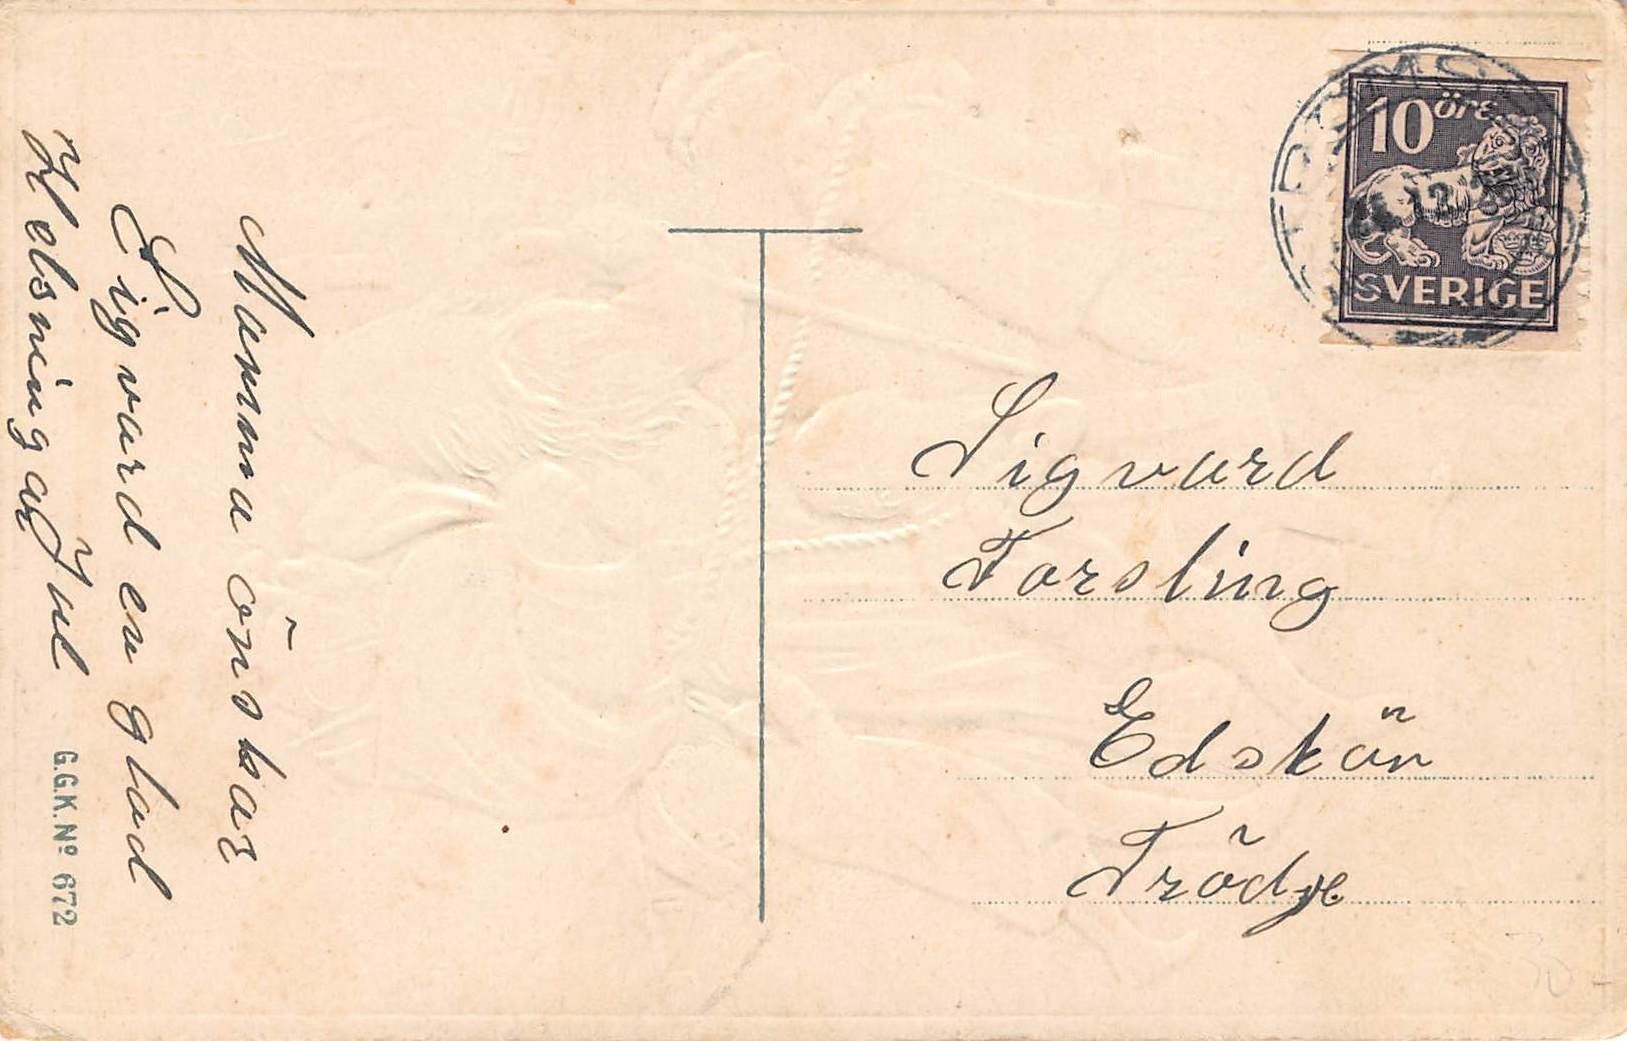 10 öre
SVERIGE
Mamma önskar
Sigvard en glad
Jul
Helsningar
G.G.K. Nº 672
Sigvard
Forsling
Edskän
Trödje
30